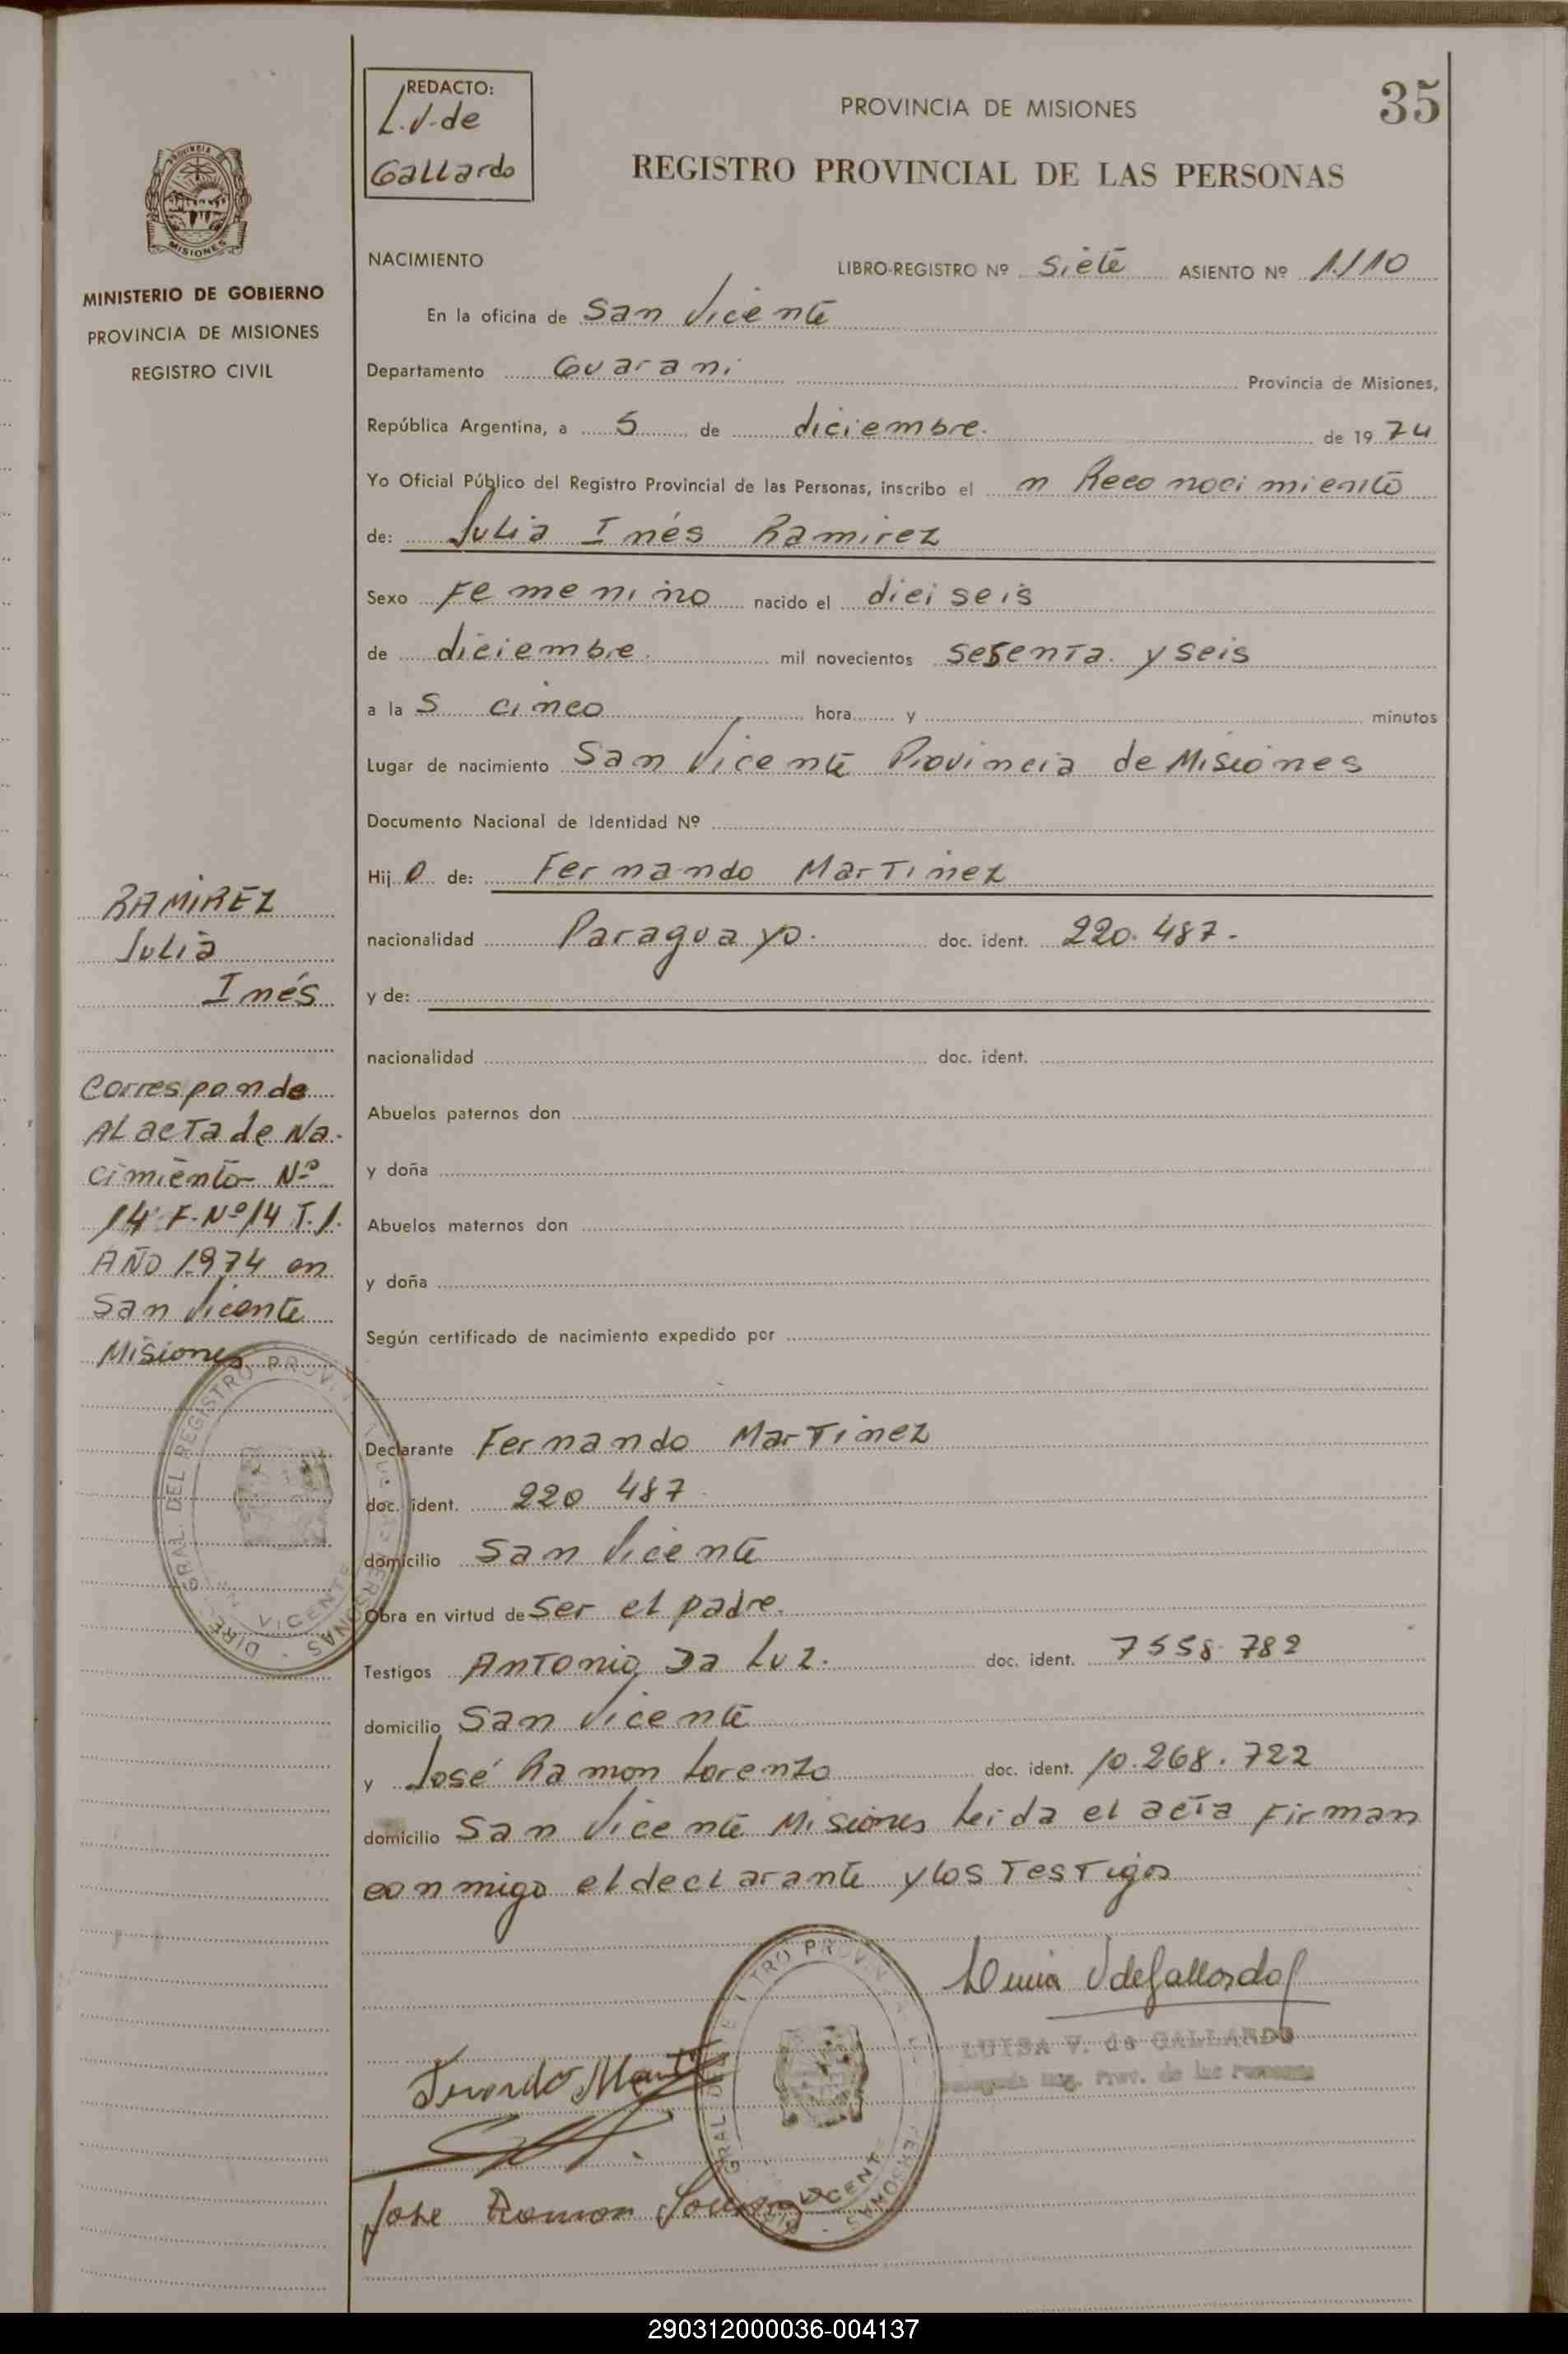 REDACTO:
L.V. de
Gallardo
PROVINCIA DE MISIONES
35
REGISTRO PROVINCIAL DE LAS PERSONAS
MISIONES
MINISTERIO DE GOBIERNO
PROVINCIA DE MISIONES
REGISTRO CIVIL
NACIMIENTO LIBRO-REGISTRO Nº Siete ASIENTO Nº 1./10
En la oficina de San Vicente
Departamento Guarani Provincia de Misiones,
República Argentina, a 5 de diciembre. de 1974
Yo Oficial Público del Registro Provincial de las Personas, inscribo el n Reconocimiento
de: Julia Inés Ramirez
Sexo Femenino nacido el dieiseis
de diciembre. mil novecientos sesenta. y seis
a las cinco hora y minutos
Lugar de nacimiento San Vicente Provincia de Misiones
Documento Nacional de Identidad Nº
Hij o de: Fernando Martinez
nacionalidad Paraguayo. doc. ident. 220.487.-
y de:
nacionalidad doc. ident.
Abuelos paternos don
y doña
Abuelos maternos don
y doña
Según certificado de nacimiento expedido por
Declarante Fernando Martinez
doc. ident. 220 487
domicilio San Vicente
Obra en virtud de Ser el padre.
Testigos Antonio Da Luz. doc. ident. 7558.782
domicilio San Vicente
y José Ramon Lorenzo doc. ident. 10.268.722
domicilio San Vicente Misiones leida el acta Firman
conmigo el declarante y los Testigos
RAMIREZ
Julia
Inés
Corresponde
Al acta de Na-
cimiento Nº
14 F. Nº 14 T.1.
AÑO 1974 en
San Vicente
Misiones
DIRE. GRAL. DEL REGISTRO PROV. PERSONAS
VICENTE
V de Gallardo
LUISA V. de GALLARDO
Reg. Prov. de las Personas
Jose Ramon
290312000036-004137